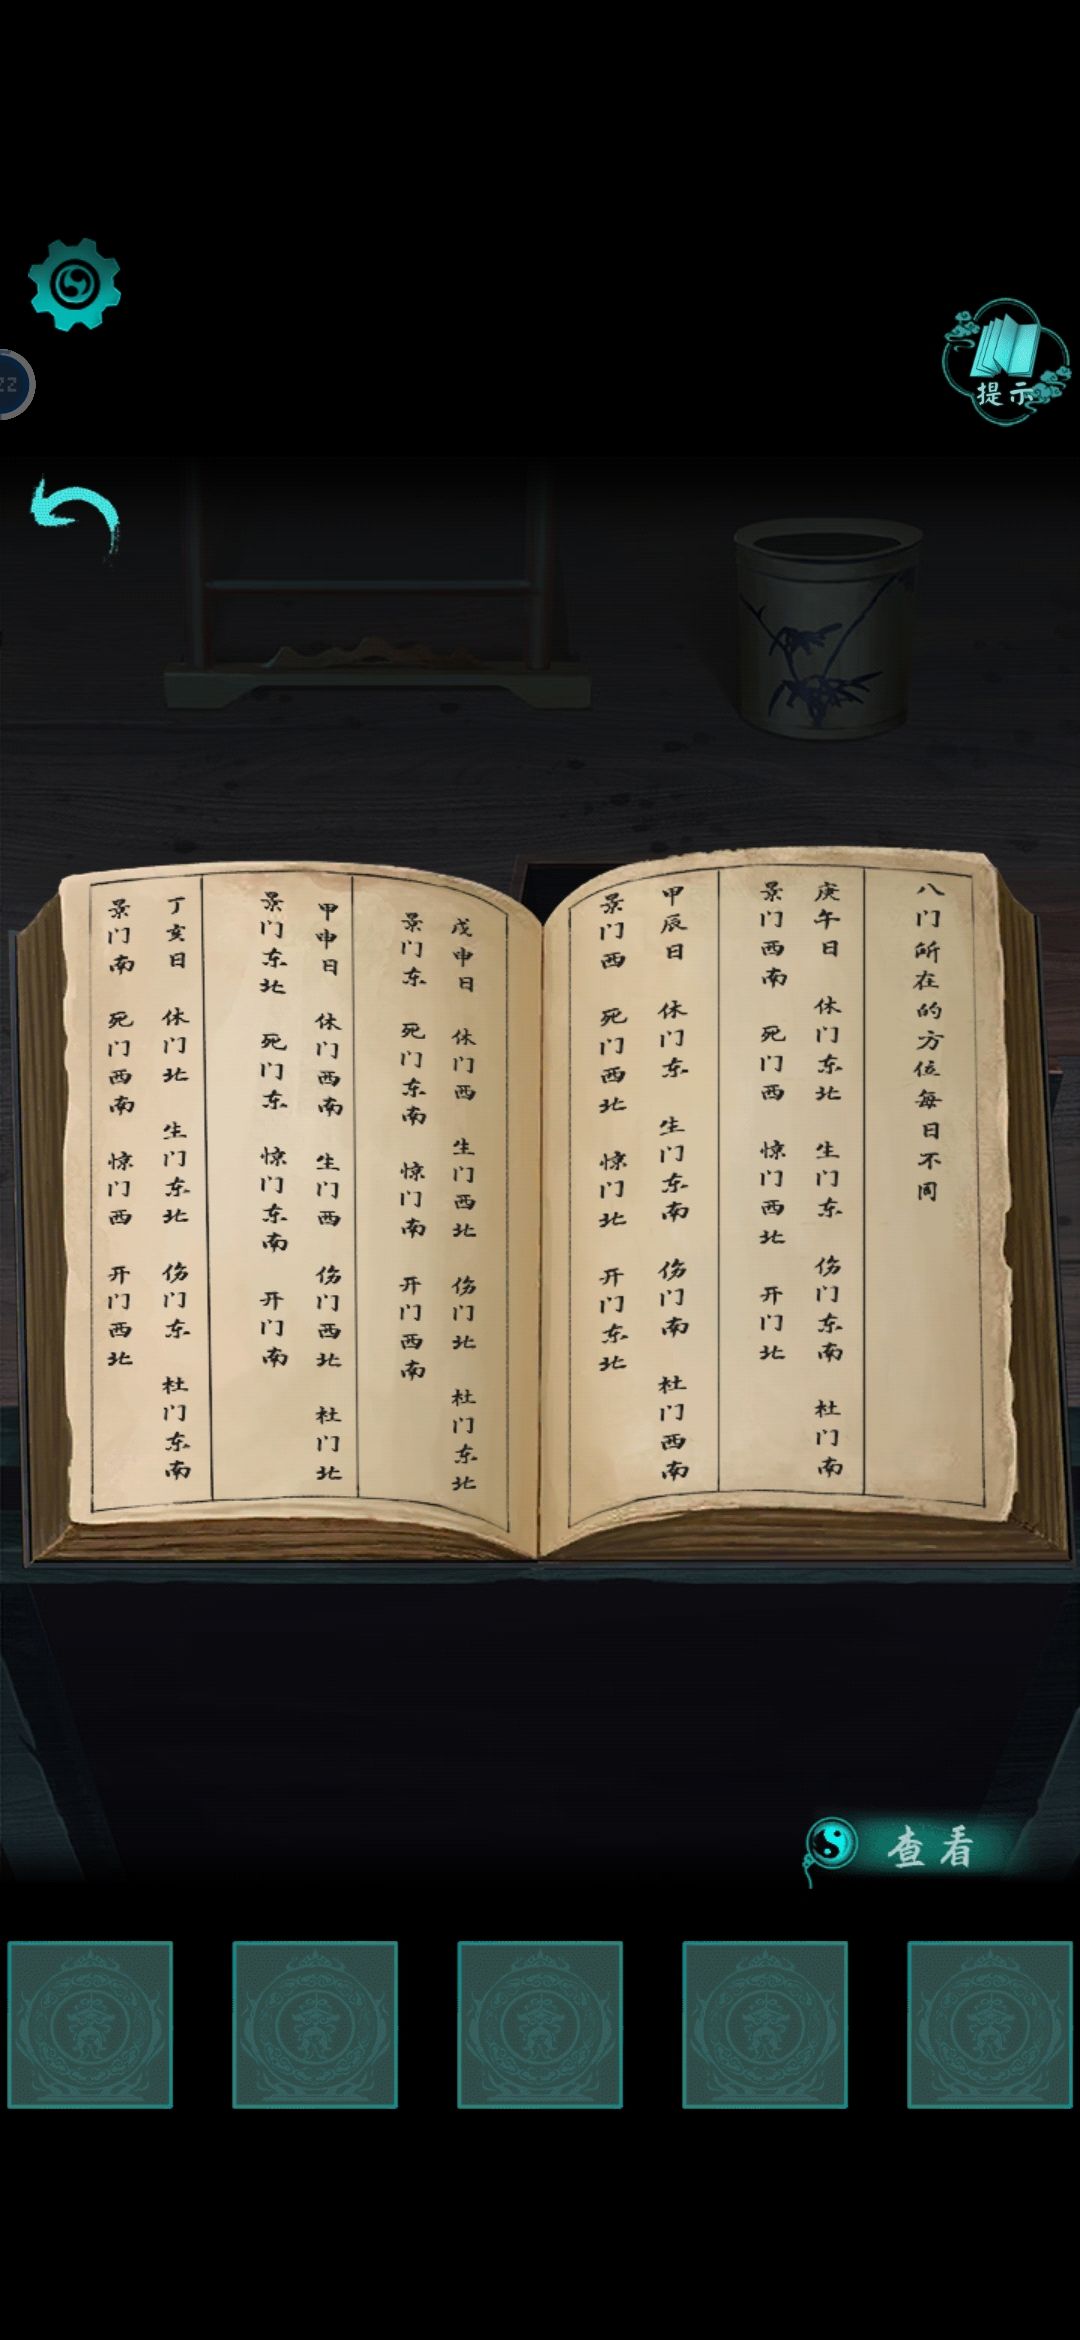 提示
八门所在的方位每日不同
庚午日 休门东北 生门东 伤门东南 杜门南
景门西南 死门西 惊门西北 开门北
甲辰日 休门东 生门东南 伤门南 杜门西南
景门西 死门西北 惊门北 开门东北
戊申日 休门西 生门西北 伤门北 杜门东北
景门东 死门东南 惊门南 开门西南
甲申日 休门西南 生门西 伤门西北 杜门北
景门东北 死门东 惊门东南 开门南
丁亥日 休门北 生门东北 伤门东 杜门东南
景门南 死门西南 惊门西 开门西北
查看